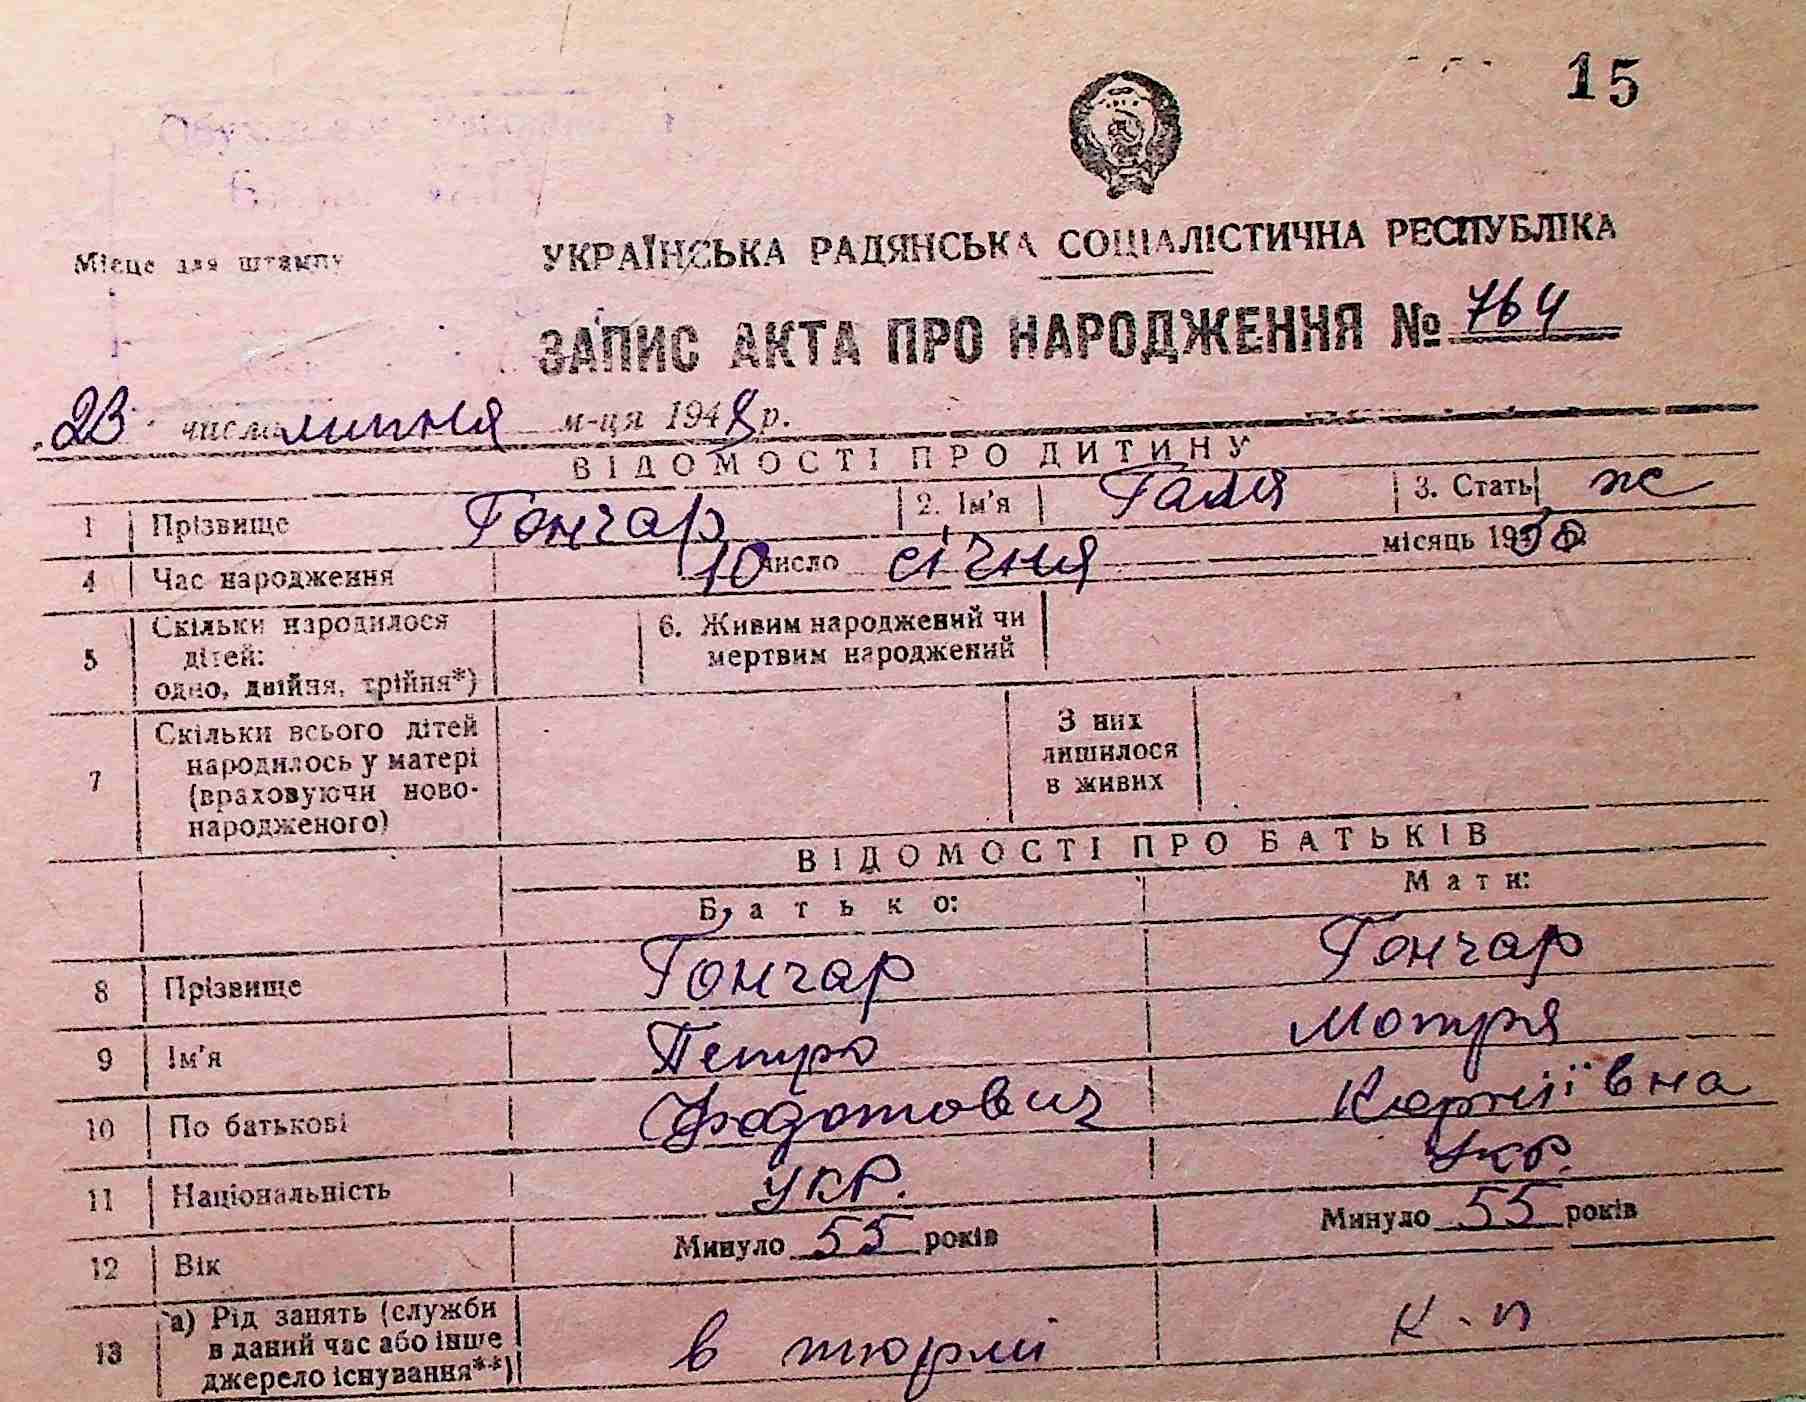 15
Місце для штампу
УКРАЇНСЬКА РАДЯНСЬКА СОЦІАЛІСТИЧНА РЕСПУБЛІКА
ЗАПИС АКТА ПРО НАРОДЖЕННЯ № 764
23 числа липня м-ця 1948 р.
ВІДОМОСТІ ПРО ДИТИНУ
1 Прізвище Гончар 2. Ім'я Галя 3. Стать ж
4 Час народження 10 число січня місяць 19
5 Скільки народилося дітей: одно, двійня, трійня*) 6. Живим народжений чи мертвим народжений
7 Скільки всього дітей народилось у матері (враховуючи новонародженого) З них лишилося в живих
ВІДОМОСТІ ПРО БАТЬКІВ
Батько: Мати:
8 Прізвище Гончар Гончар
9 Ім'я Петро Мотря
10 По батькові Федотович Корніївна
11 Національність укр. Укр.
12 Вік Минуло 55 років Минуло 55 років
13 а) Рід занять (служби в даний час або інше джерело існування**) в тюрмі к-п